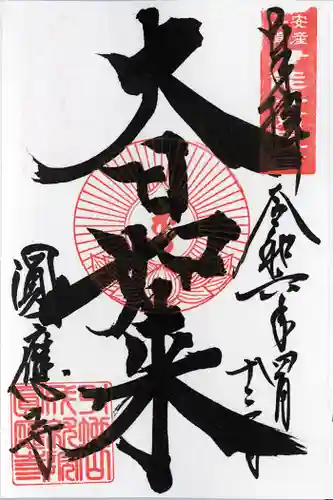 奉拝
安産
令和六年四月十三日
大日如来
圓應寺